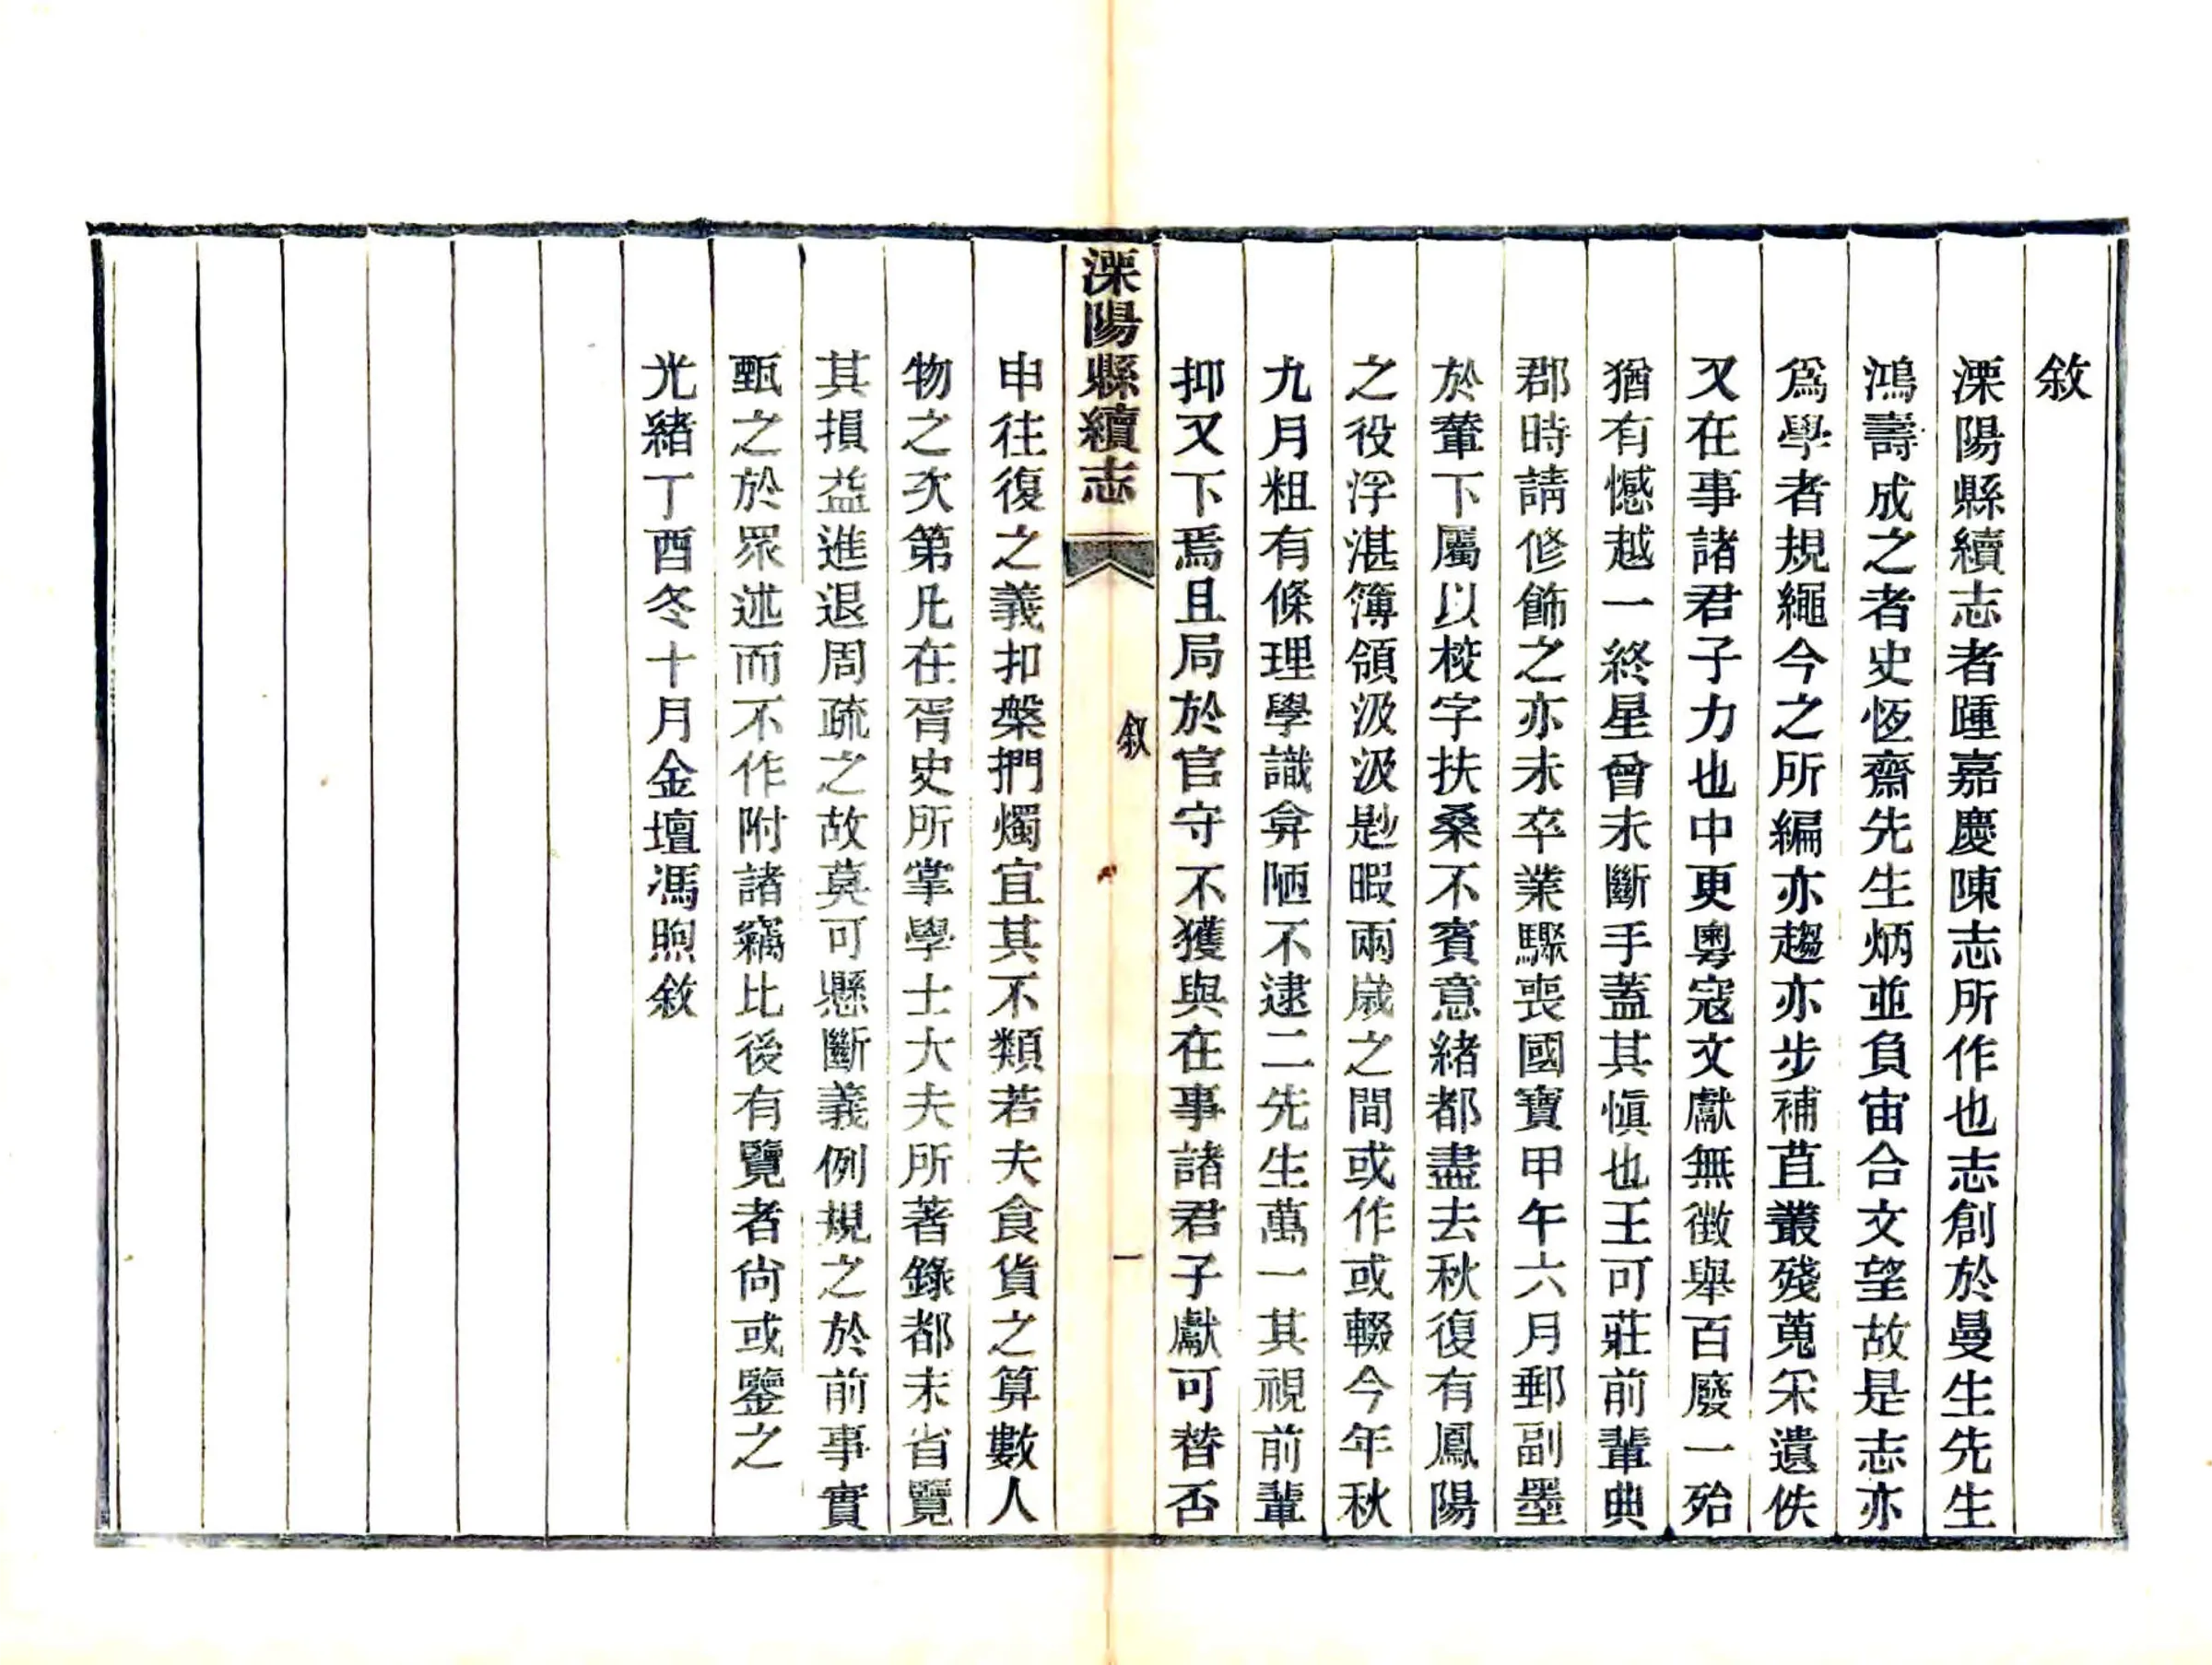 敘
溧陽縣續志者踵嘉慶陳志所作也志創於曼生先生
鴻壽成之者史恆齋先生炳並負宙合文望故是志亦
爲學者規繩今之所編亦趨亦步補苴叢殘蒐罙遺佚
又在事諸君子力也中更粵寇文獻無徵舉百廢一殆
猶有憾越一終星曾未斷手蓋其愼也王可莊前輩典
郡時請修飾之亦未卒業驟喪國寶甲午六月郵副墨
於輦下屬以校字扶桑不賓意緒都盡去秋復有鳳陽
之役浮湛簿領汲汲尟暇兩歲之間或作或輟今年秋
九月粗有條理學識弇陋不逮二先生萬一其視前輩
抑又下焉且局於官守不獲與在事諸君子獻可替否
溧陽縣續志
敘
一
申往復之義扣槃捫燭宜其不類若夫食貨之算數人
物之次第凡在胥史所掌學士大夫所著錄都未省覽
其損益進退周疏之故莫可懸斷義例規之於前事實
甄之於眾述而不作附諸竊比後有覽者尙或鑒之
光緒丁酉冬十月金壇馮煦敘